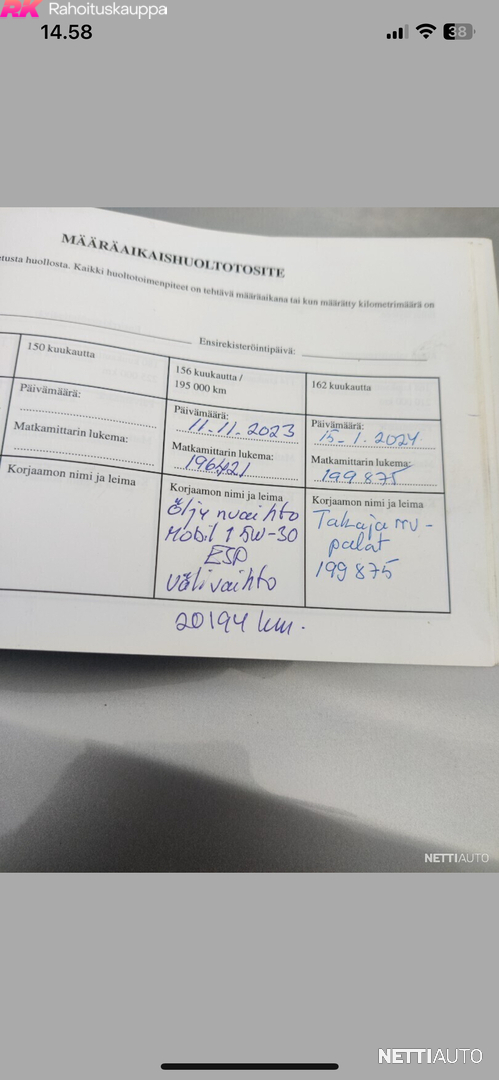 RK Rahoituskauppa
14.58
38
MÄÄRÄAIKAISHUOLTOTOSITE
etusta huollosta. Kaikki huoltotoimenpiteet on tehtävä määräaikana tai kun määrätty kilometrimäärä on
Ensirekisteröintipäivä:
150 kuukautta
156 kuukautta /
195 000 km
162 kuukautta
Päivämäärä:
Päivämäärä:
11-11.2023
Päivämäärä:
15-1.2024
Matkamittarin lukema:
Matkamittarin lukema:
196421
Matkamittarin lukema:
199875
Korjaamon nimi ja leima
Korjaamon nimi ja leima
öljy nvaihto
Mobil 1 5W-30
ESP
välivaihto
Korjaamon nimi ja leima
Takaja rru-
palat
199875
20194 km.
NETTIAUTO
NETTIAUTO